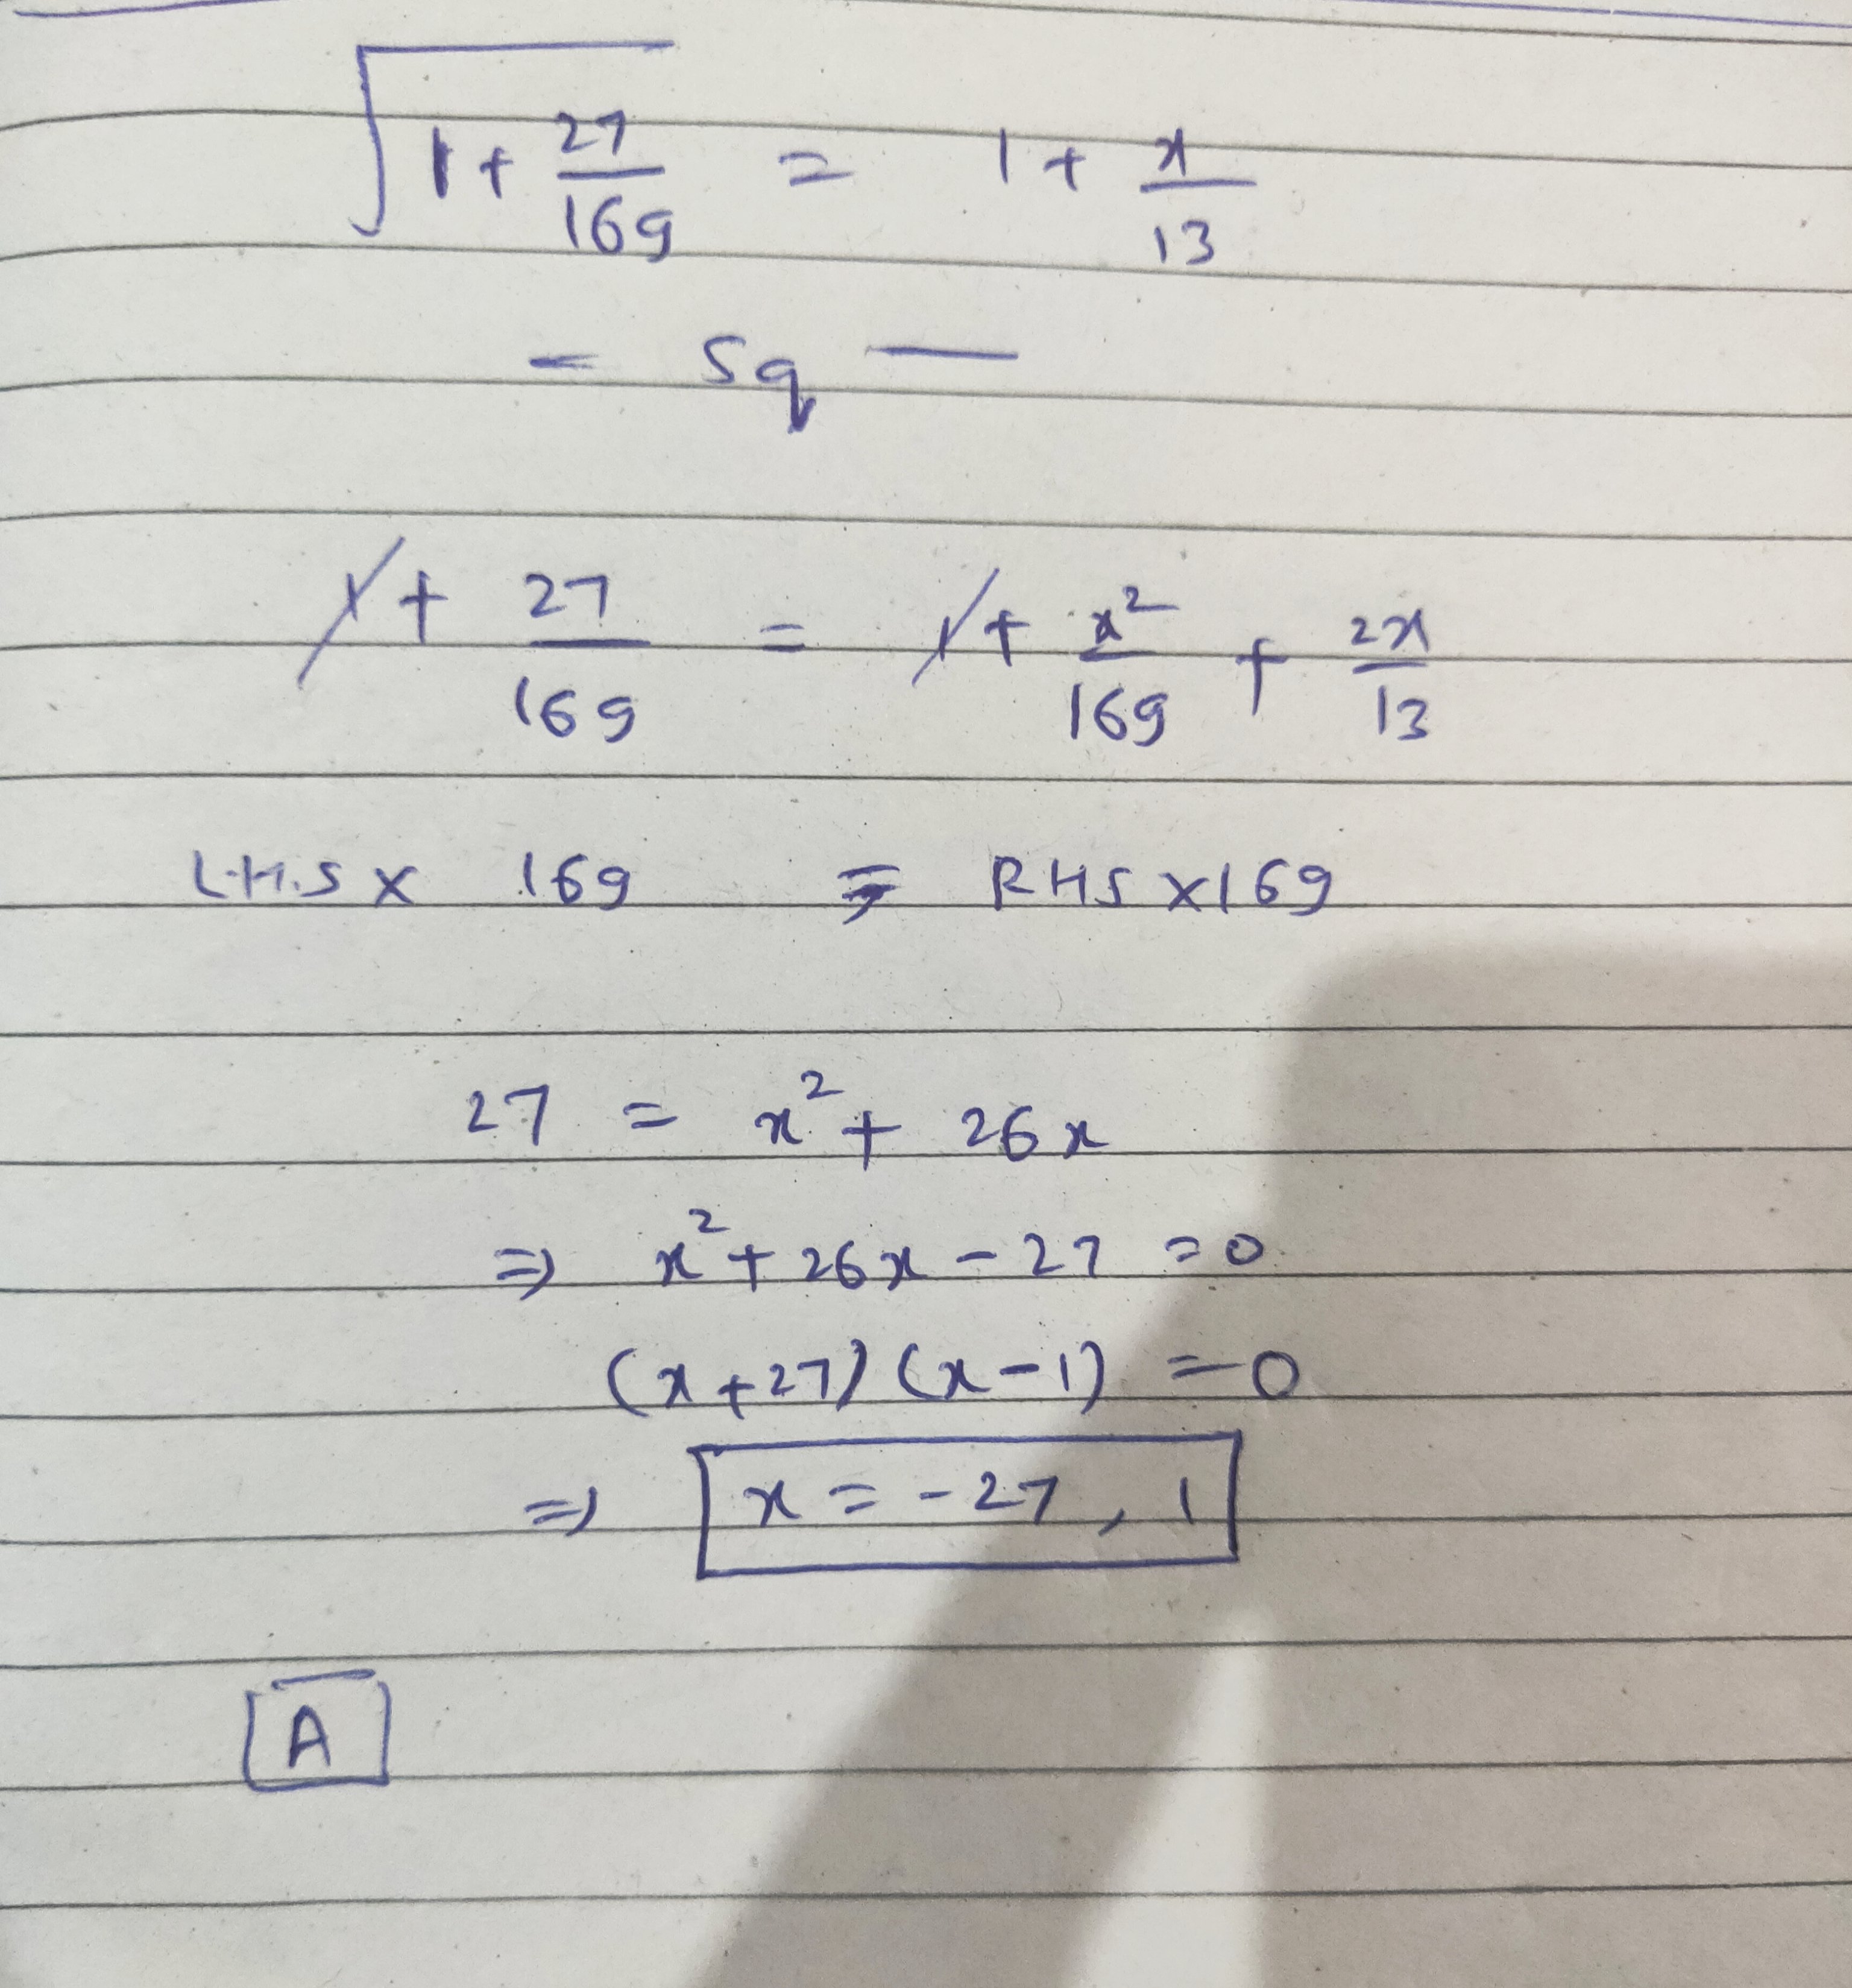 √(1 + 27/169) = 1 + x/13
- Sq —
1 + 27/169 = 1 + x²/169 + 2x/13
L.H.S × 169 = RHS × 169
27 = x² + 26x
⇒ x² + 26x - 27 = 0
(x + 27) (x - 1) = 0
⇒ x = -27, 1
A